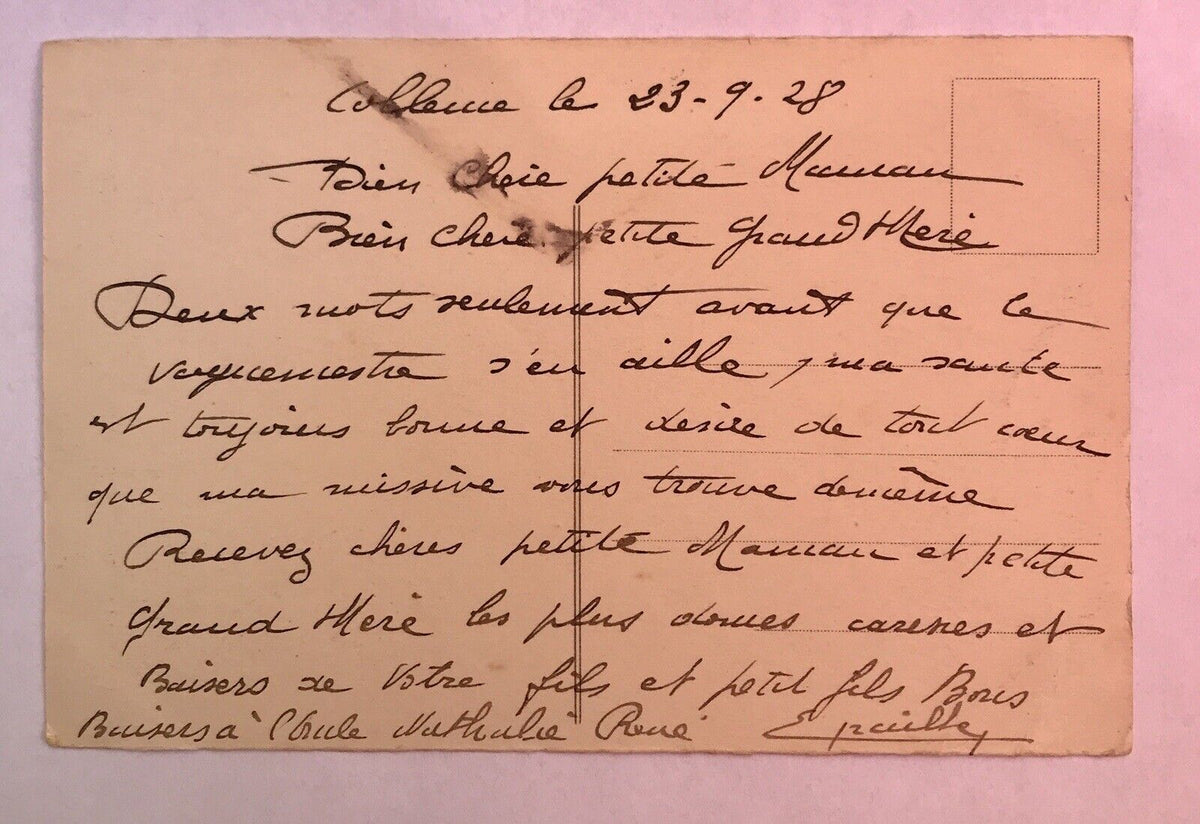 Coblence le 23-9-28
Bien Chere petite Maman
Bien chere petite Grand Mere
Deux mots seulement avant que le
vaguemestre s'en aille, ma santé
est toujours bonne et désire de tout coeur
que ma missive vous trouve demême
Recevez chères petite Maman et petite
grand Mere les plus douces caresses et
Baisers de Votre fils et petit fils Boris
Baisers à Nathalie René